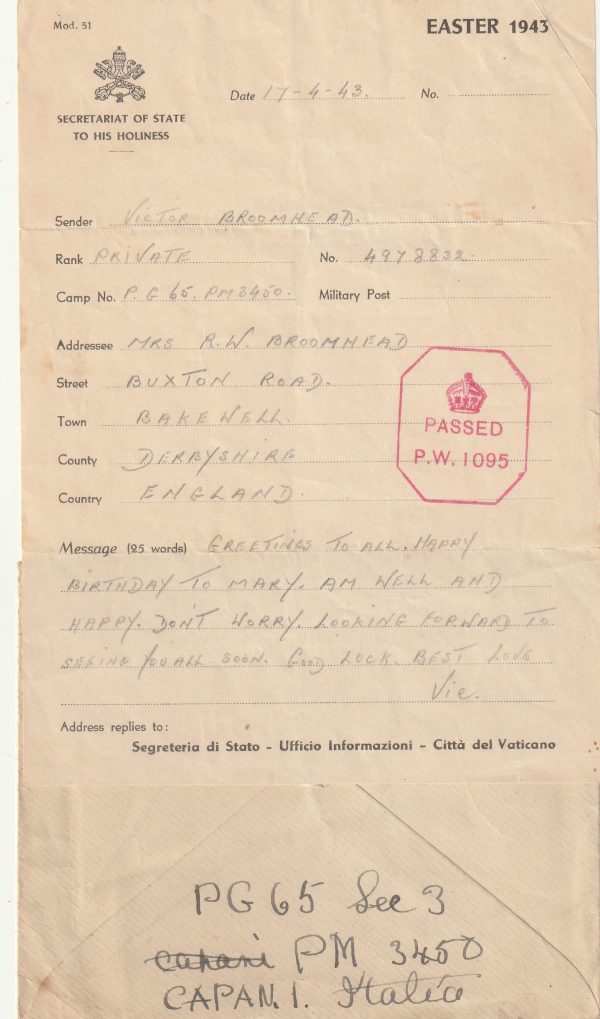 Mod. 51
EASTER 1943
SECRETARIAT OF STATE
TO HIS HOLINESS
Date 17-4-43. No.
Sender VICTOR BROOMHEAD.
Rank PRIVATE No. 4978832.
Camp No. P.G 65. PM 3450. Military Post
Addressee MRS R.W. BROOMHEAD
Street BUXTON ROAD.
Town BAKEWELL.
County DERBYSHIRE
Country ENGLAND.
PASSED
P.W. 1095
Message (25 words) GREETINGS TO ALL. HAPPY
BIRTHDAY TO MARY. AM WELL AND
HAPPY. DON'T WORRY. LOOKING FORWARD TO
SEEING YOU ALL SOON. GOOD LUCK. BEST LOVE
Vic.
Address replies to:
Segreteria di Stato - Ufficio Informazioni - Città del Vaticano
PG 65 Sec 3
capani PM 3450
CAPAN.I. Italia